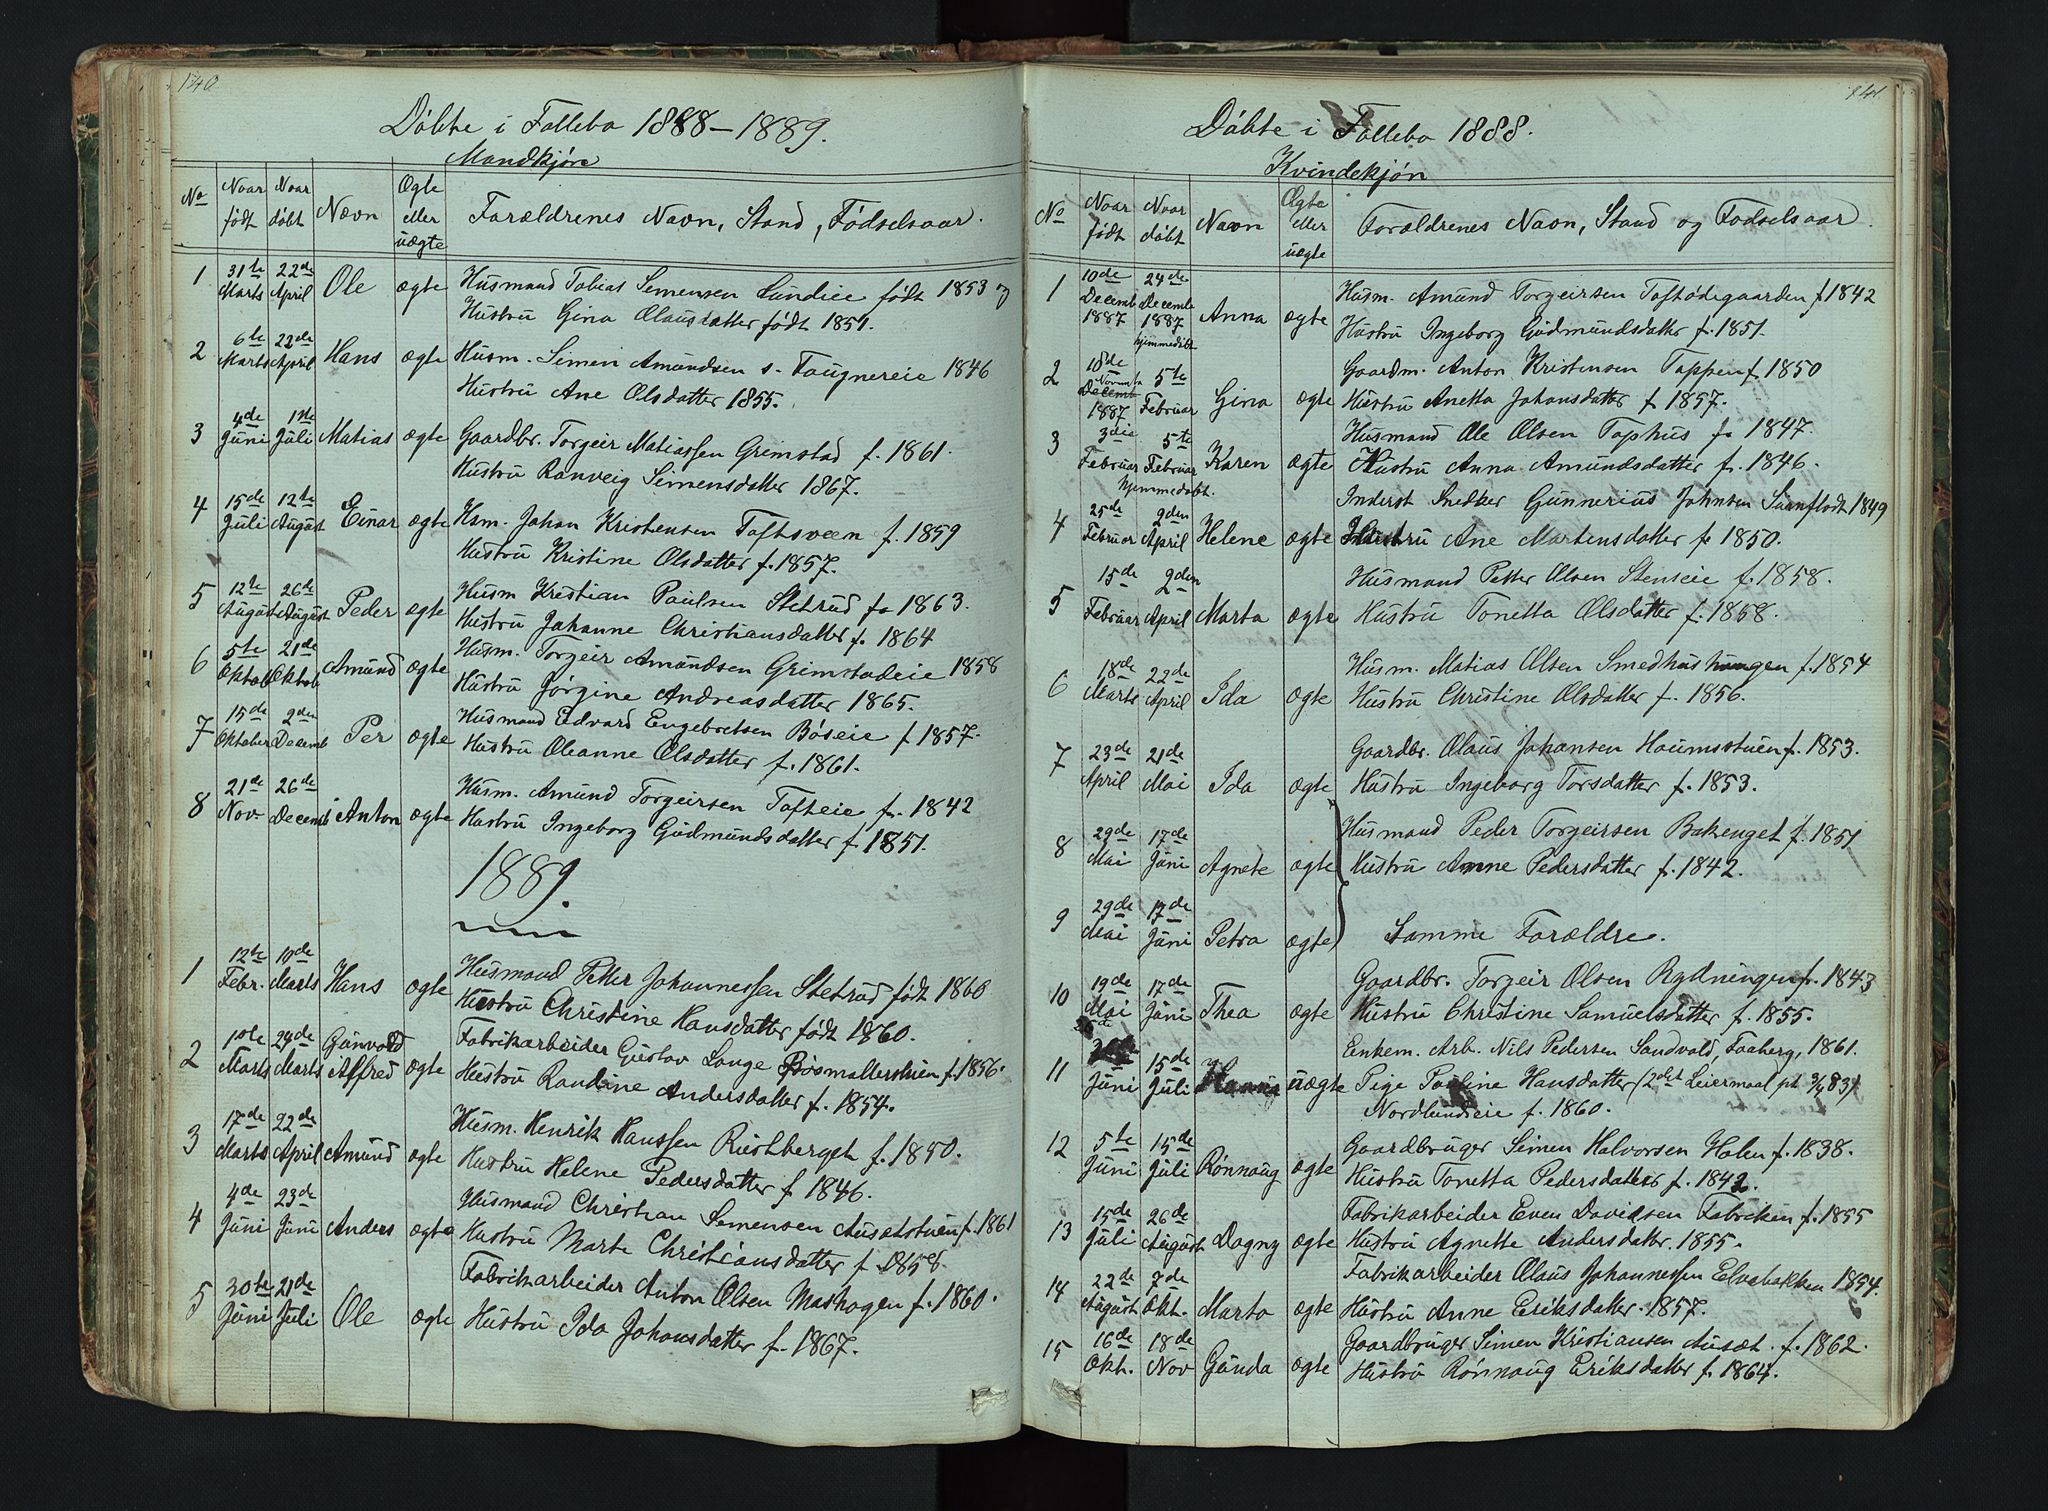 140
Døbte i Follebo 1888–1889.
Mandkjøn
No Naar født Naar døbt Navn Ægte eller uægte Forældrenes Navn, Stand, Fødselsaar.
1 31te Marts 22de April Ole ægte Husmand Tobias Semensen Lundeie født 1853 og
Hustru Gina Olausdatter født 1851.
2 6te Marts 22de April Hans ægte Husm. Simen Amundsen s. Faugnereie 1846
Hustru Ane Olsdatter 1855.
3 4de Juni 1ste Juli Matias ægte Gaardbr. Torgeir Matiassen Grimstad f. 1861.
Hustru Ranveig Simensdatter 1867.
4 15de Juli 12te August Einar ægte Hsm. Johan Kristensen Toftsveen f. 1859
Hustru Kristine Olsdatter f. 1857.
5 12te August 26de August Peder ægte Husm Kristian Paulsen Stetrud f. 1863.
Hustru Johanne Christiansdatter f. 1864
6 5te Oktob 21de Oktob Amund ægte Husm. Torgeir Amundsen Grimstadeie 1858
Hustru Jørgine Andreasdatter 1865.
7 15de Oktober 2den Decemb Per ægte Husmand Edvard Engebretsen Bøseie f 1857.
Hustru Oleanne Olsdatter f. 1861.
8 21de Nov. 26de Decemb Anton ægte Husm. Amund Torgeirsen Tofteie f. 1842
Hustru Ingeborg Gudmundsdatter f 1851.
1889.
1 12te Febr. 10de Marts Hans ægte Husmand Petter Johannessen Stetrud født 1860
Hustru Christine Hansdatter født 1860.
2 10de Marts 24de Marts Gunvald Alfred ægte Fabrikarbeider Gustav Lange Bøsmallerstuen f. 1856.
Hustru Randine Andersdatter f. 1854.
3 17de Marts 22de April Amund ægte Husm. Henrik Hanssen Rustberget f. 1850.
Hustru Helene Pedersdatter f 1846.
4 4de Juni 23de Juni Anders ægte Husmand Christian Semensen Ausetstuen f. 1861
Hustru Marte Christiansdatter f. 1858.
5 30te Juni 21de Juli Ole ægte Fabrikarbeider Anton Olsen Moshagen f. 1860.
Hustru Ida Johansdatter f. 1867.
141.
Døbte i Follebo 1888.
Kvindekjøn
No Naar født Naar døbt Navn Ægte eller uægte Forældrenes Navn, Stand og Fødselsaar
1 10de Decemb 1887 24de Decembe 1887 hjemmedøbt Anna ægte Husm. Amund Torgeirsen Toftødegaarden f 1842
Hustru Ingeborg Gudmundsdatter f. 1851.
2 18de Novemb 1887 5te Februar Gina ægte Gaardm. Anton Kristensen Toppen f 1850
Hustru Anetta Johansdatter f 1857.
3 3die Februar 5te Februar hjemmedøbt. Karen ægte Husmand Ole Olsen Tophus f. 1847.
Hustru Anna Amundsdatter f. 1846.
4 25de Februar 2den April Helene ægte Inderst Snedker Gunnerius Johnsen født 1849
Hustru Ane Martensdatter f. 1850.
5 15de Februar 2den April Marta ægte Husmand Petter Olsen Stenseie f. 1858.
Hustru Tonetta Olsdatter f. 1858.
6 18de Marts 22de April Ida ægte Husm. Matias Olsen Smedhushaugen f. 1854
Hustru Christine Olsdatter f. 1856.
7 23de April 21de Mai Ida ægte Gaardbr. Olaus Johansen Haumsstuen f. 1853.
Hustru Ingeborg Torsdatter f. 1853.
8 29de Mai 17de Juni Agnete ægte Husmand Peder Torgeirsen Bakenget f. 1851
Hustru Anne Pedersdatter f. 1842.
9 29de Mai 17de Juni Petra ægte Samme Forældre.
10 19de Mai 17de Juni Thea ægte Gaardbr. Torgeir Olsen Rydningen f. 1843
Hustru Christine Samuelsdatter f. 1855.
11 26de Juni 15de Juli uægte Enkem. Arb. Nils Pedersen Sandvold, Faaberg, 1861.
Pige Pauline Hansdatter (2det Leiermaal
Nordlundeie f. 1860.
12 5te Juni 15de Juli Rønnaug ægte Gaardbruger Simen Halvorsen Holen f. 1838.
Hustru Tonetta Pedersdatter f. 1842.
13 15de Juli 26de August Dagny ægte Fabrikarbeider Even Davidsen Fabriken f. 1855
Hustru Agnette Andersdatter. 1855.
14 22de August 7de Okt. Marta ægte Fabrikarbeider Olaus Johannessen Elvebakken 1854.
Hustru Anne Eriksdatter. 1857.
15 16de Okt. 18de Nov Gunda ægte Gaardbruger Simen Kristiansen Ausæt. f. 1862.
Hustru Rønnaug Eriksdatter f. 1864.